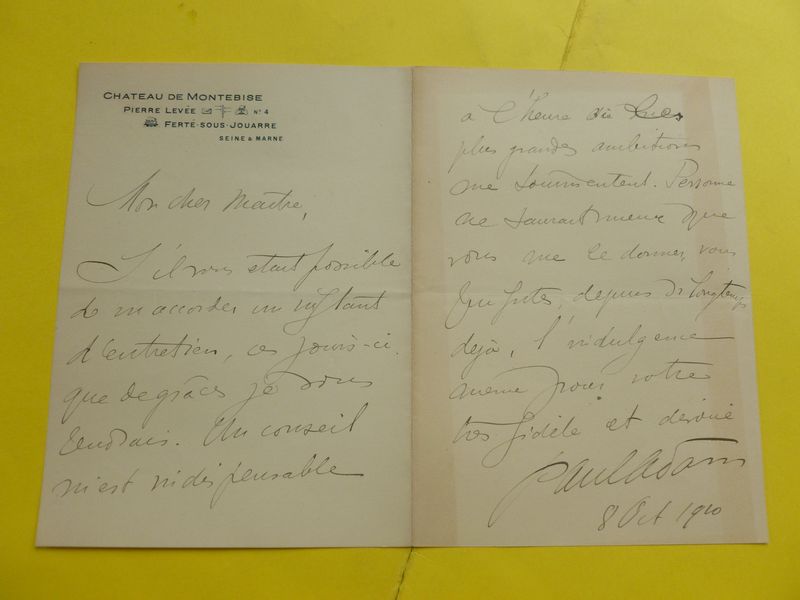 CHATEAU DE MONTEBISE
PIERRE LEVÉE N° 4
FERTÉ-SOUS-JOUARRE
SEINE & MARNE
Mon cher Maître,
S'il vous était possible
de m'accorder un instant
d'entretien, ces jours-ci.
que de grâces je vous
rendrais. Un conseil
m'est indispensable
à l'heure où
plus grandes ambitions
me tourmentent. Personne
ne saurait mieux que
vous me le donner, vous
qui êtes, depuis si longtemps
déjà, l'indulgence
même pour votre
très fidèle et dévoué
Paul Adam
8 Oct 1910